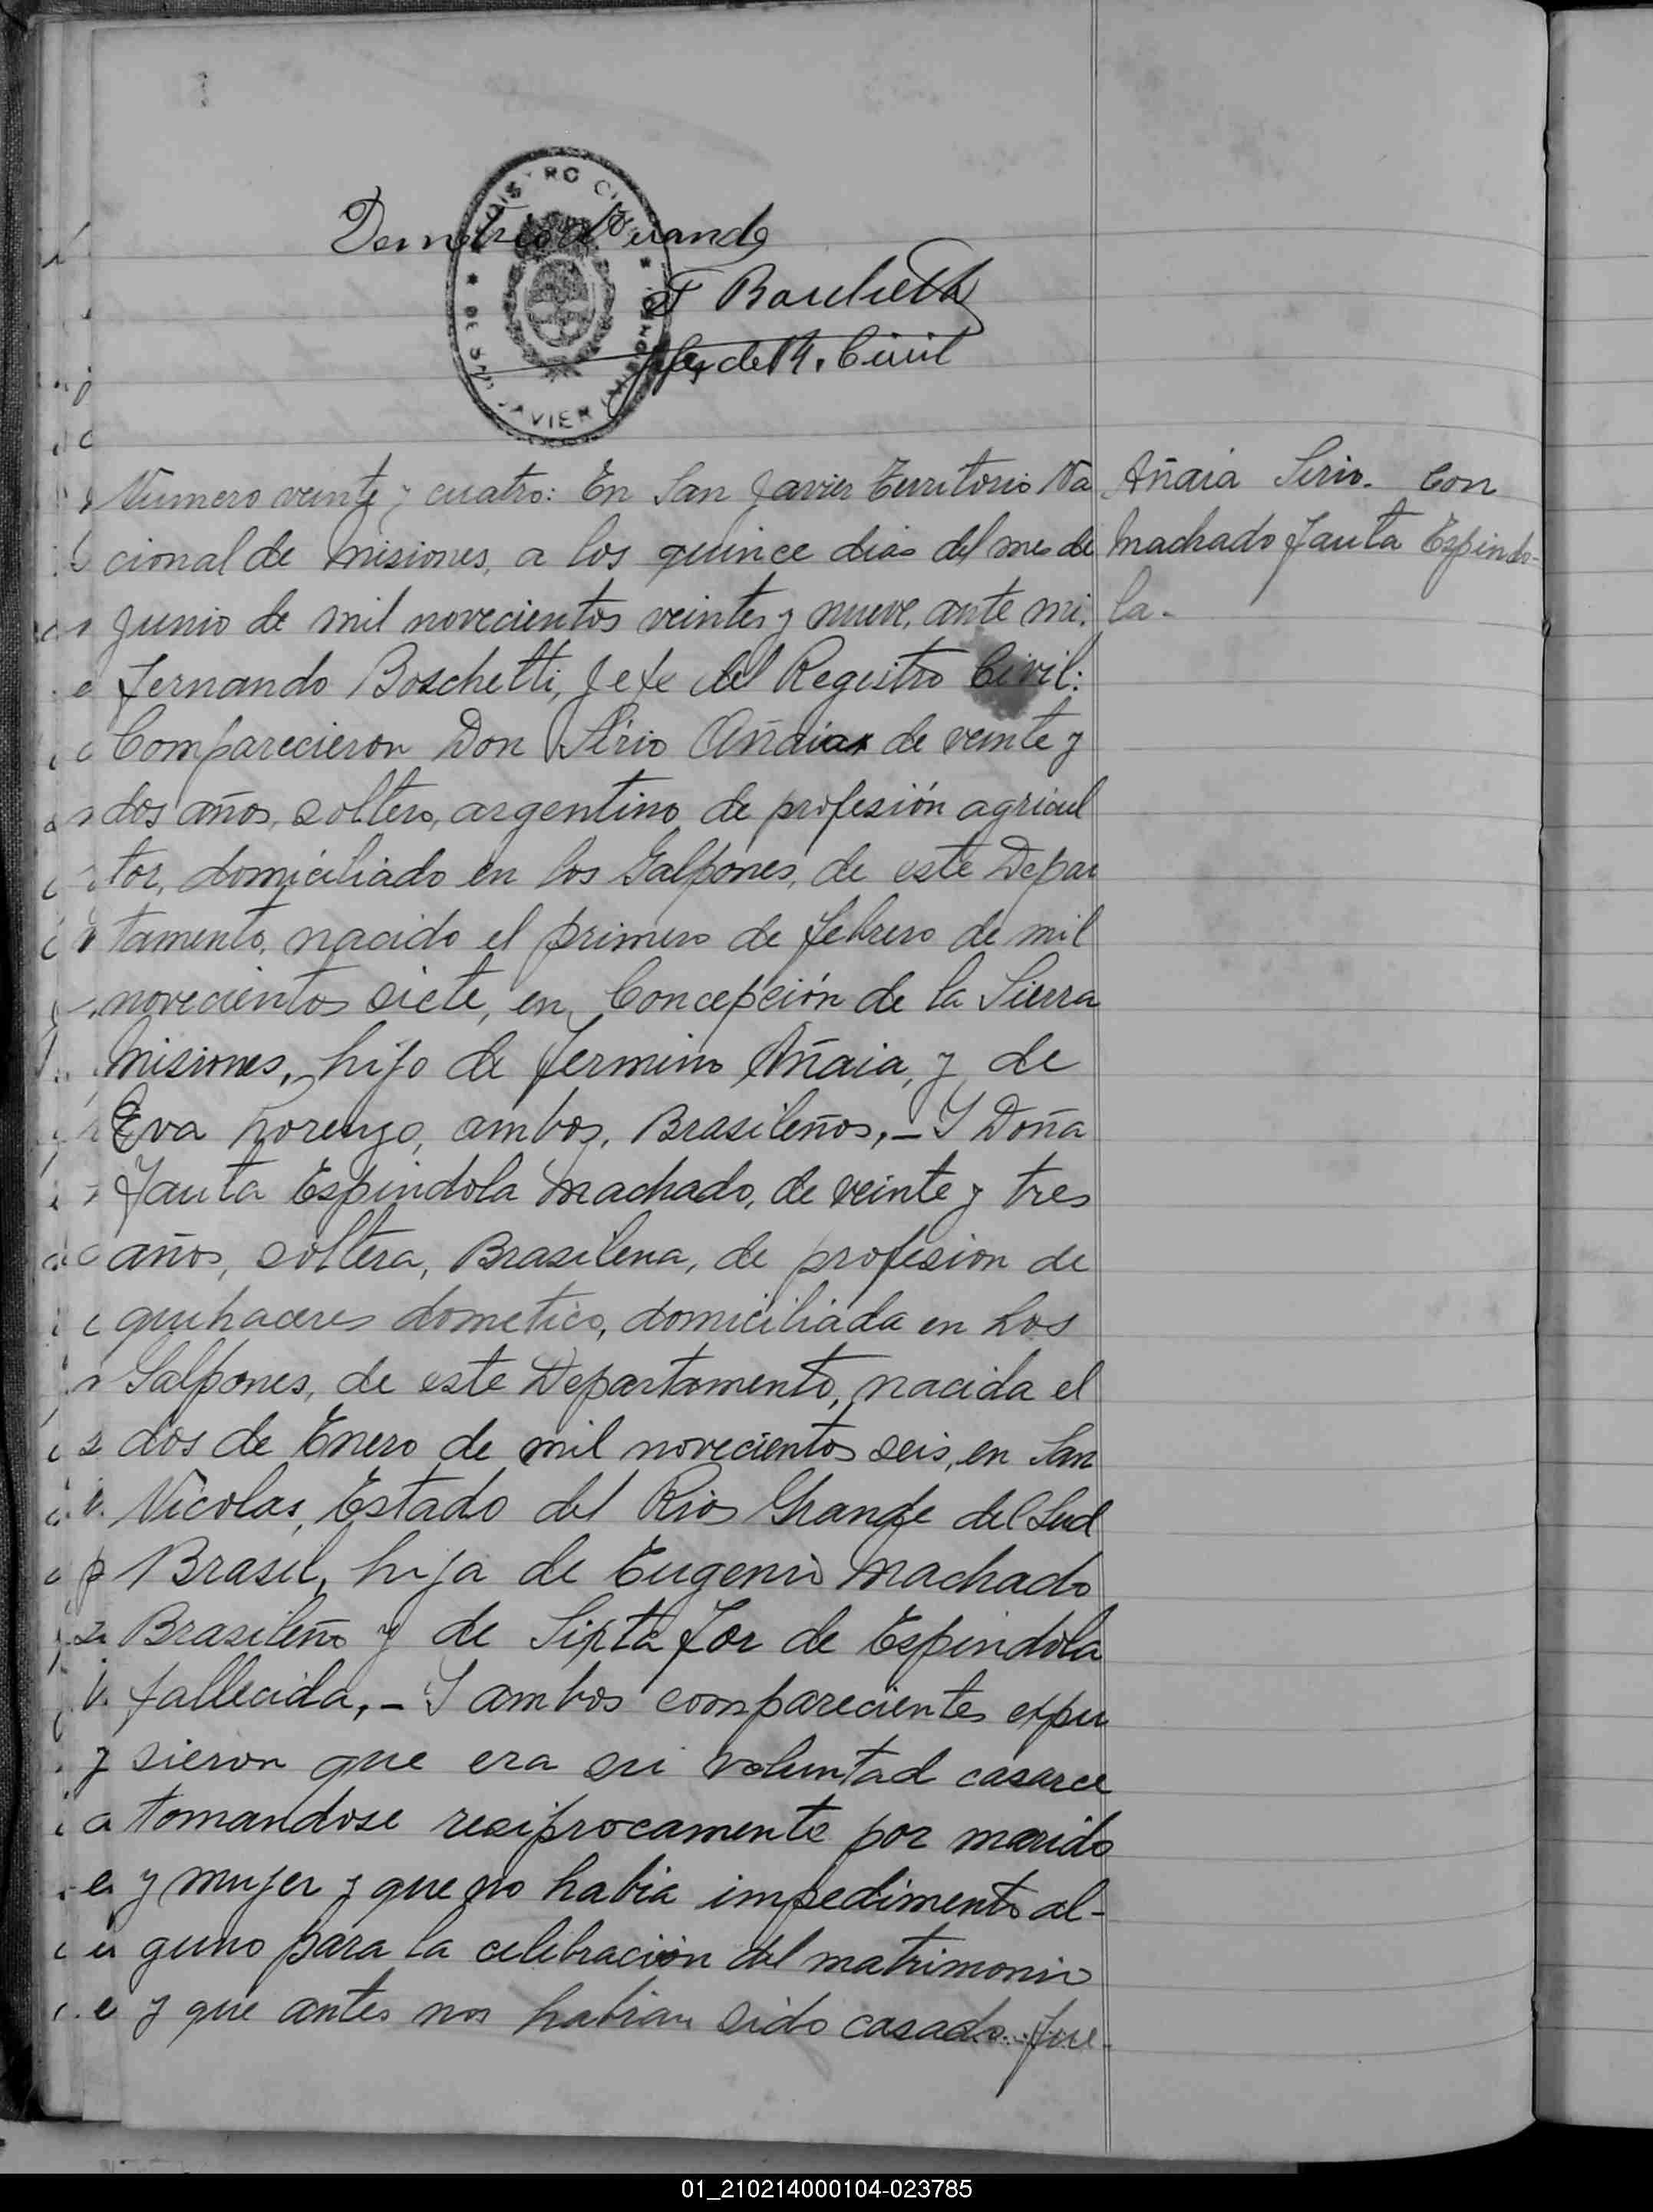 REGISTRO CIVIL
DE SAN JAVIER MISIONES
F Boschetti
Jefe del R. Civil
Numero veinte y cuatro: En San Javier Territorio Na
cional de Misiones, a los quince dias del mes de
Junio de mil novecientos veintes y nueve, ante mi.
Fernando Boschetti, Jefe del Registro Civil:
Comparecieron Don Sirio Añaia de veinte y
dos años, soltero, argentino de profesión agricul
tor, domiciliado en los Galpones, de este Depar
tamento, nacido el primero de febrero de mil
novecientos siete, en Concepción de la Sierra
Misiones, hijo de Fermino Añaia, y de
Eva Lorenzo, ambos, Brasileños,- Y Doña
Jauta Espindola Machado, de veinte y tres
años, soltera, Brasilena, de profesion de
quehaceres dometico, domiciliada en Los
Galpones, de este Departamento, nacida el
dos de Enero de mil novecientos seis, en San
Nicolas, Estado del Rio Grande del Sud
Brasil, hija de Eugenio Machado
Brasileño y de Sixta Flor de Espindola
fallecida,- Y ambos compareciente expu
sieron que era su voluntad casarce
tomandose resiprocamente por marido
y mujer y que no habia impedimento al-
guno para la celebración del matrimonio
y que antes nos habian sido casado. Fue-
Añaia Sirio. Con
Machado Jauta Espindo-
la-
01_210214000104-023785